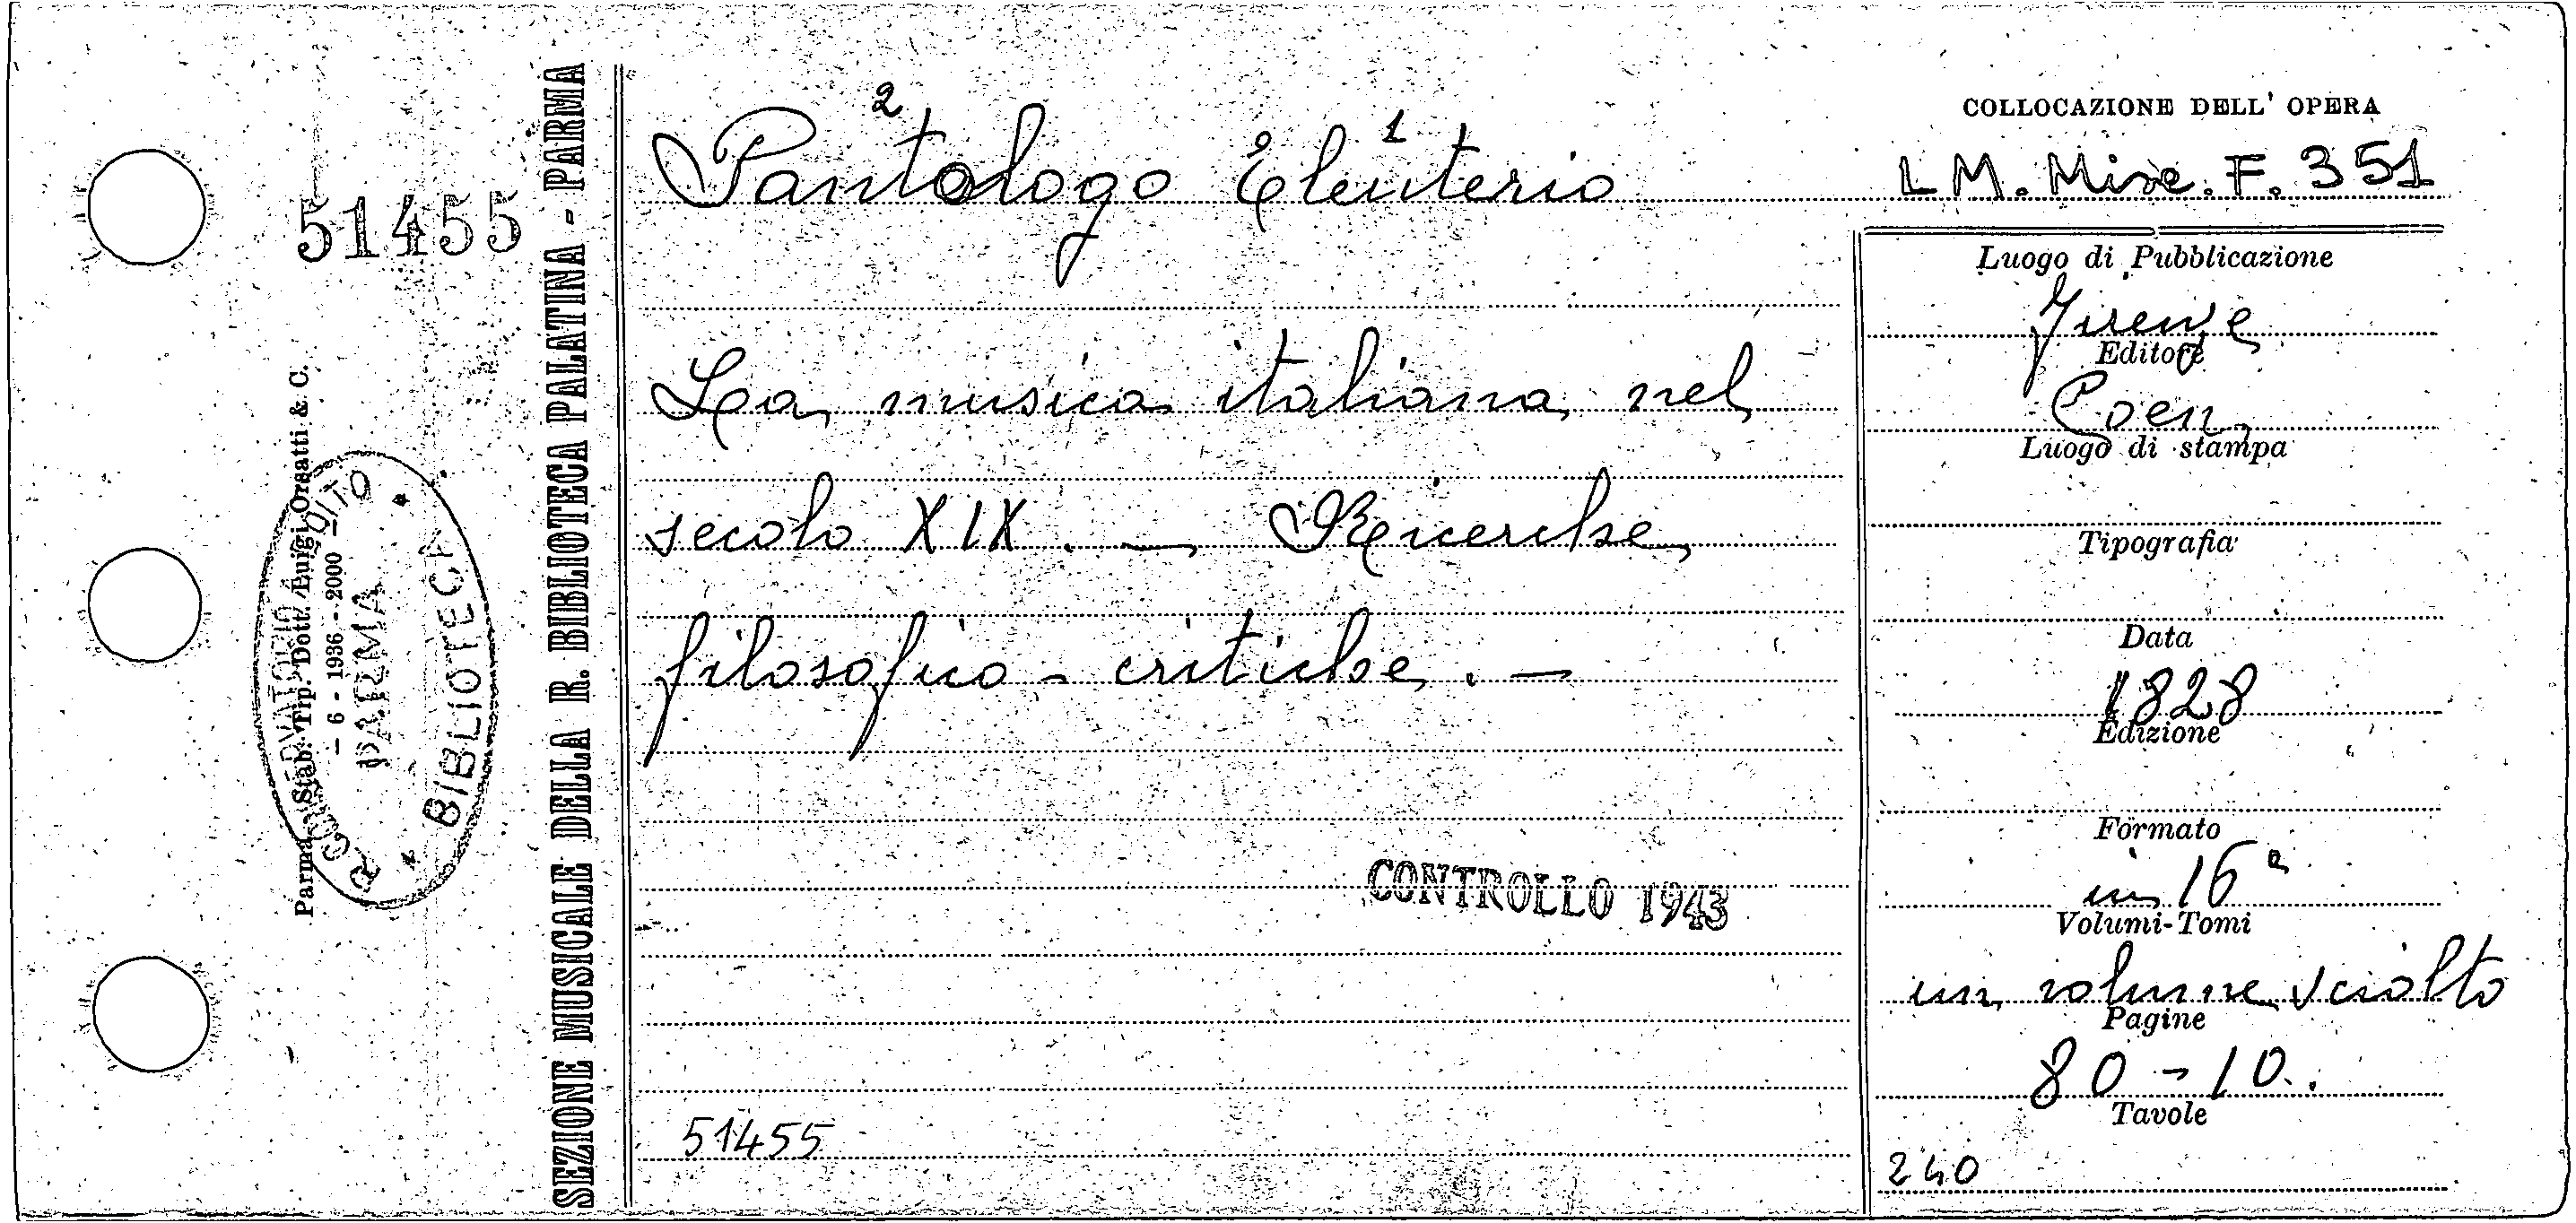 51455
Parma - Stab. Tip. Dott. Luigi Orsati & C.
- 6 - 1936 - 2000 -
R. CONSERVATORIO
PARMA
BIBLIOTECA
SEZIONE MUSICALE DELLA R. BIBLIOTECA PALATINA - PARMA
2 1
Pantologo Eleuterio
La musica italiana nel
secolo XIX. - Ricerche
filosofico - critiche. -
CONTROLLO 1943
51455
COLLOCAZIONE DELL' OPERA
LM. Misc. F. 351
Luogo di Pubblicazione
Firenze
Editore
Coen
Luogo di stampa
Tipografia
Data
1828
Edizione
Formato
in 16°
Volumi-Tomi
un volume sciolto
Pagine
80 - 10.
Tavole
240